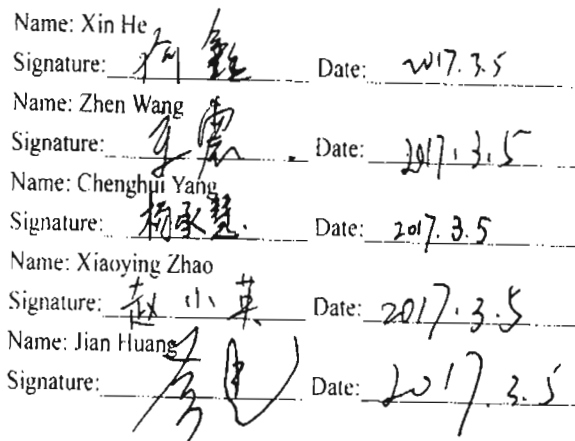 Name: Xin He
Signature: 何鑫 Date: 2017.3.5
Name: Zhen Wang
Signature: 王震 Date: 2017.3.5
Name: Chenghui Yang
Signature: 杨承慧 Date: 2017.3.5
Name: Xiaoying Zhao
Signature: 赵小英 Date: 2017.3.5
Name: Jian Huang
Signature: Date: 2017.3.5